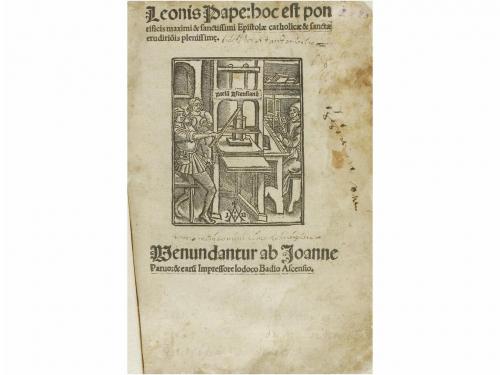 Leonis Pape: hoc est pon
tificis maximi & sanctissimi Epistolæ catholicæ & sanctæ
eruditiōis plenissimę.
Prelū Ascensianū
Venundantur ab Joanne
Paruo: & earū Impressore Iodoco Badio Ascensio.